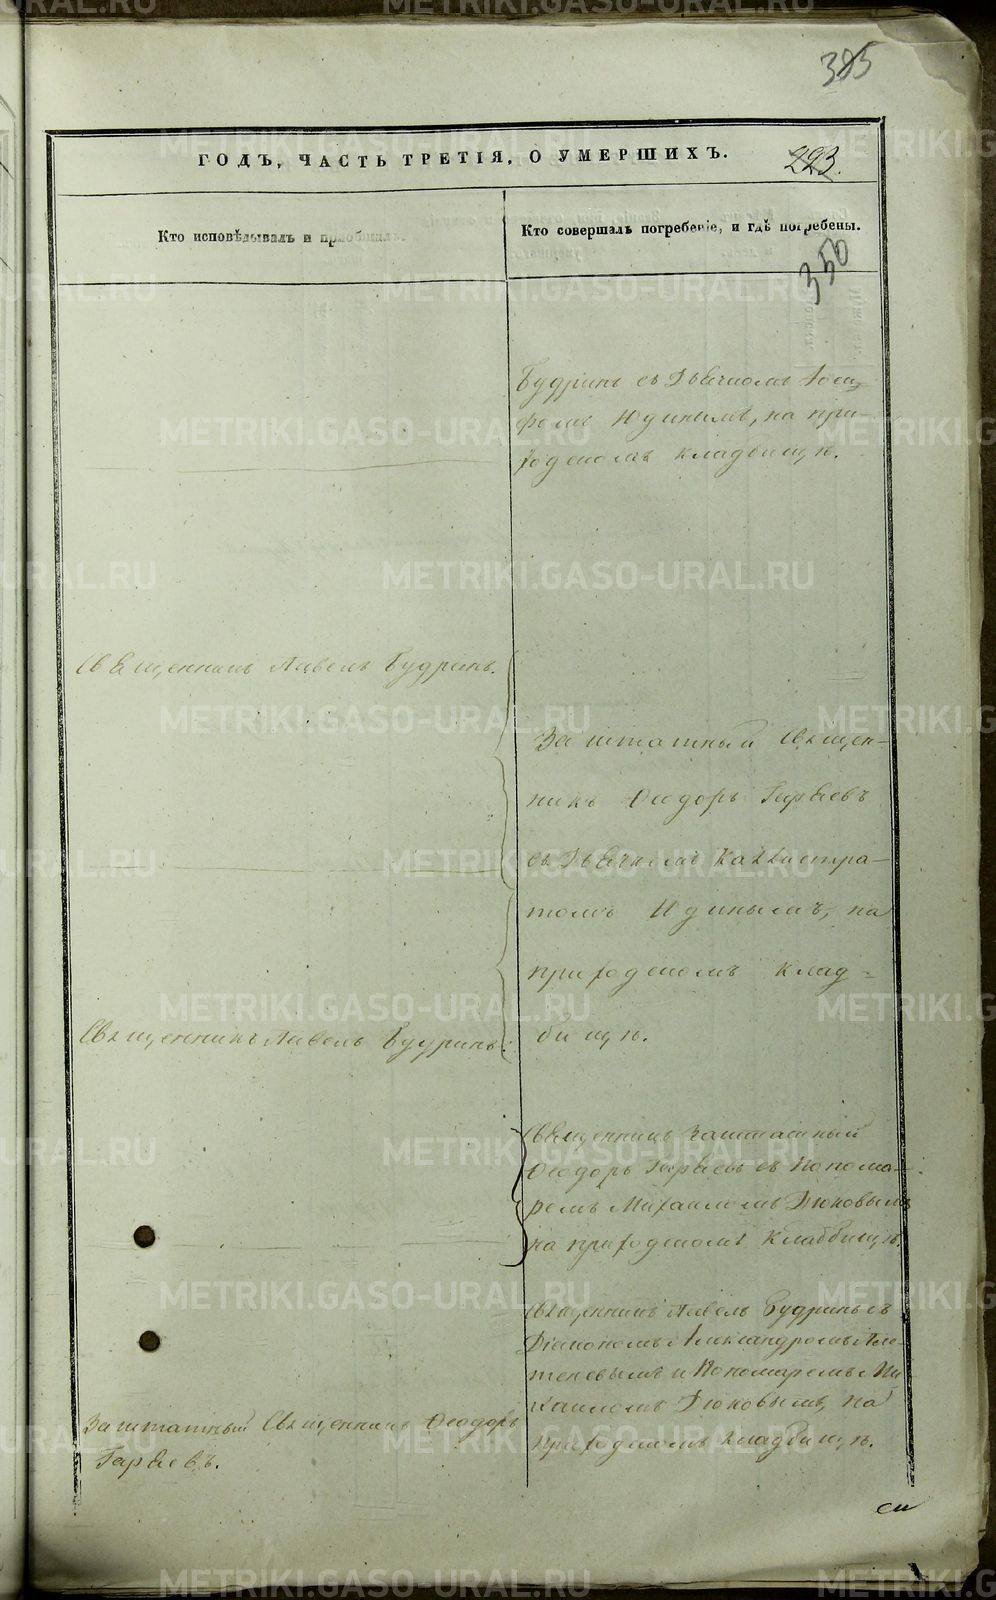 385
ГОДЪ, ЧАСТЬ ТРЕТІЯ, О УМЕРШИХЪ.
223.
Кто исповѣдывалъ и пріобщалъ.
Кто совершалъ погребеніе, и гдѣ погребены.
350
Будринъ съ Дьячкомъ Іоси-
фомъ Юдинымъ, на при-
ходскомъ кладбищѣ.
Священникъ Павелъ Будринъ.
Заштатный Священ-
никъ Ѳеодоръ
съ Дьячкомъ Каллистра-
томъ Юдинымъ, на
приходскомъ клад-
бищѣ.
Священникъ Павелъ Будринъ.
Священникъ Заштатный
Ѳеодоръ съ Понома-
ремъ Михаиломъ Дюковымъ
на приходскомъ кладбищѣ.
Священникъ Павелъ Будринъ съ
Діакономъ Александромъ
и Пономаремъ Ми-
хаиломъ Дюковымъ, на
приходскомъ кладбищѣ.
Заштатный Священникъ Ѳеодоръ
METRIKI.GASO-URAL.RU